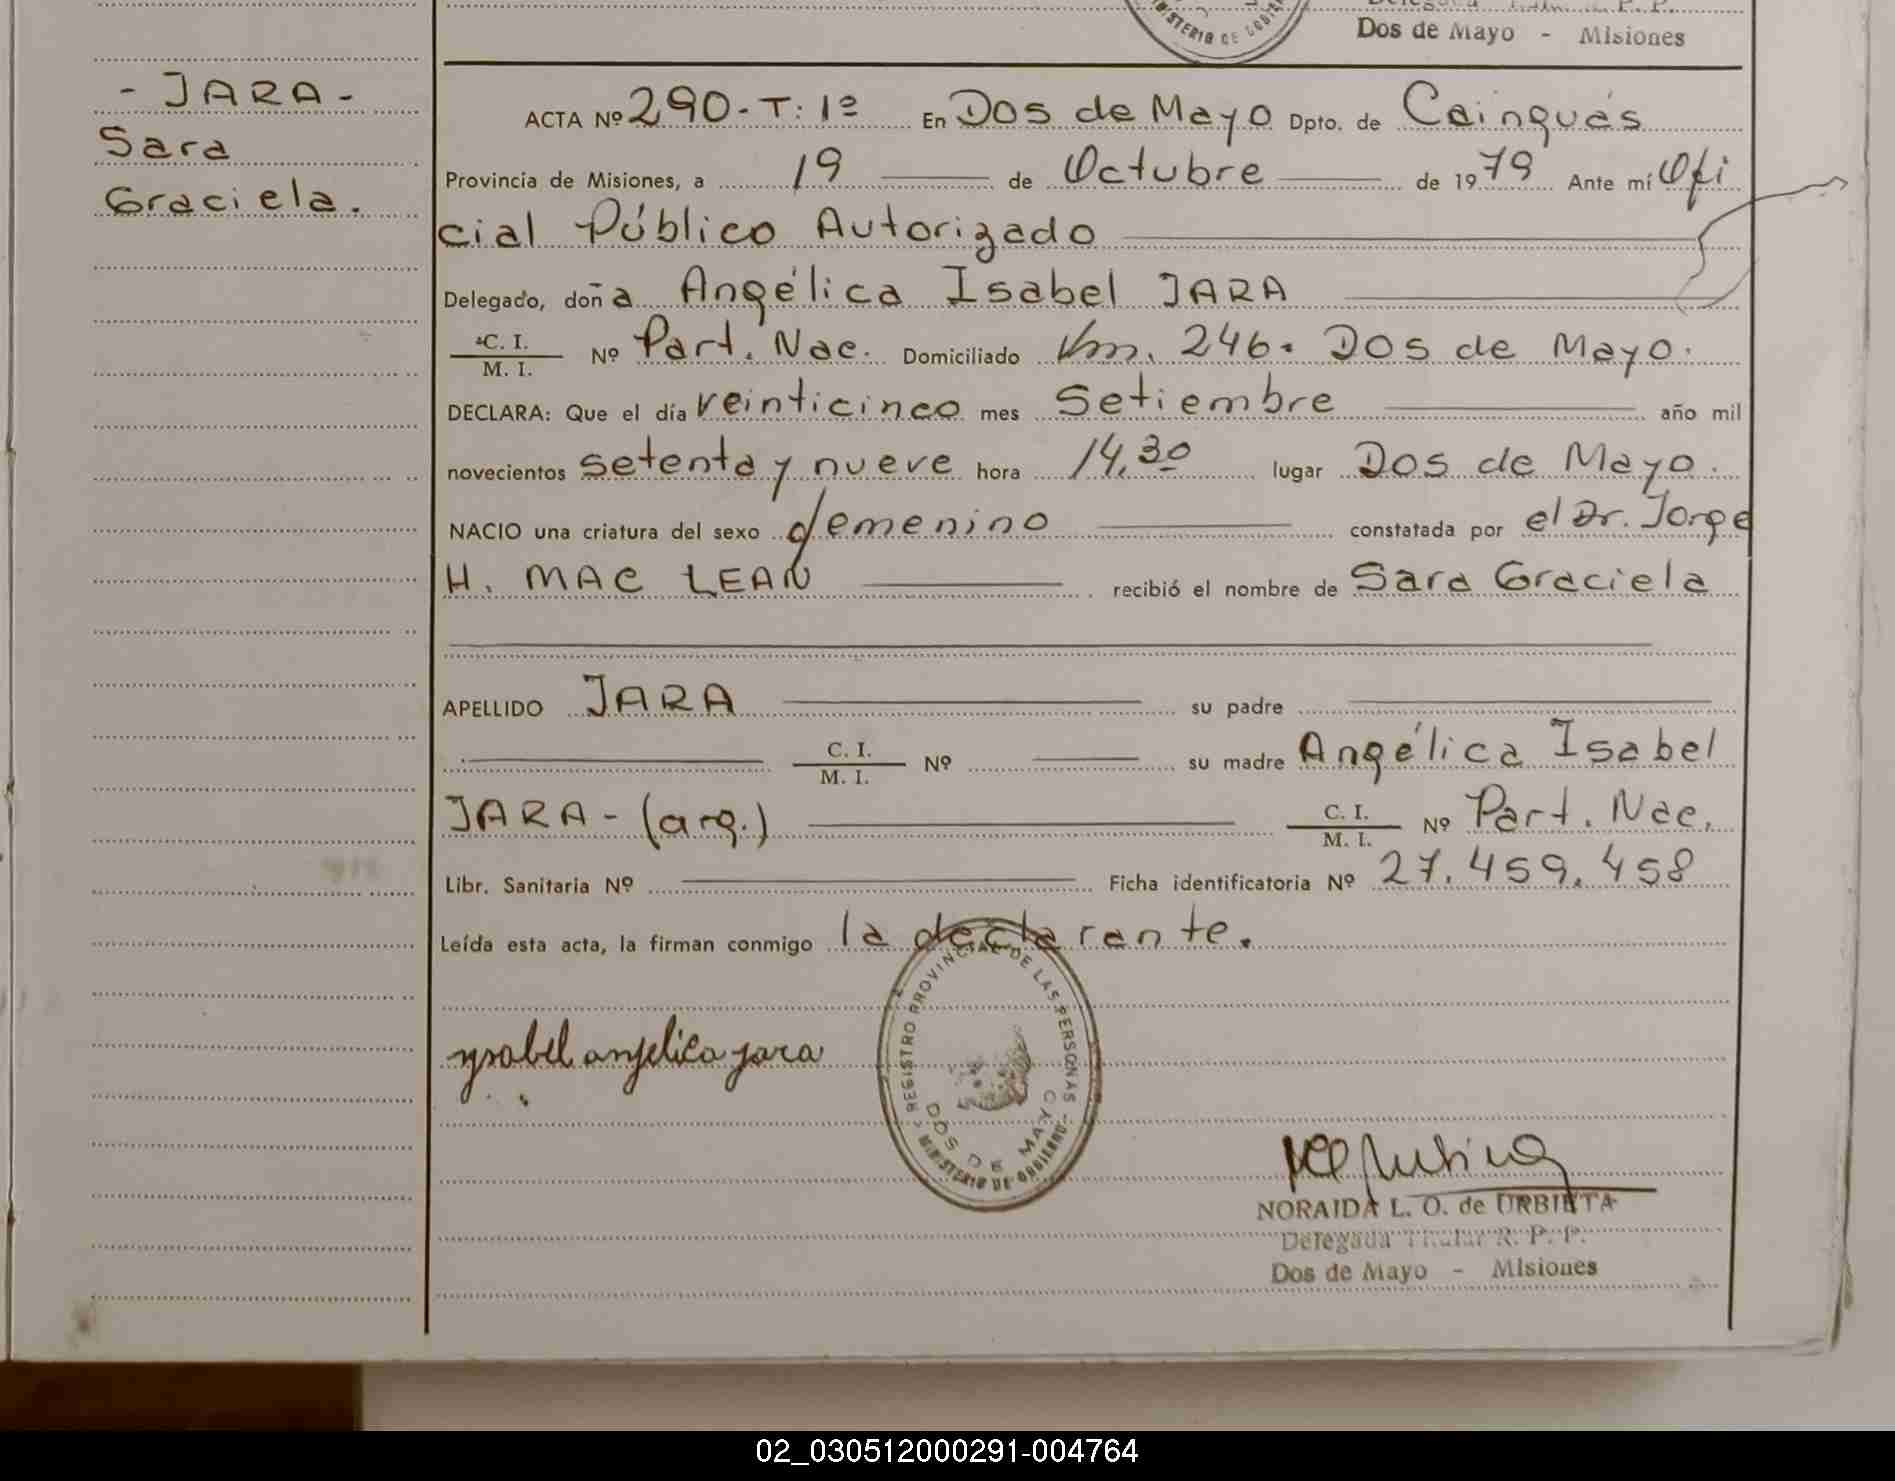 MINISTERIO DE GOBIE
Dos de Mayo - Misiones
- JARA -
Sara
Graciela.
ACTA Nº 290-T: 1º En Dos de Mayo Dpto. de Cainguás
Provincia de Misiones, a 19 de Octubre de 1979 Ante mí Ofi
cial Público Autorizado
Delegado, doña Angélica Isabel JARA
C. I.
M. I. Nº Part. Nac. Domiciliado Km. 246. Dos de Mayo.
DECLARA: Que el día veinticinco mes Setiembre año mil
novecientos setenta y nueve hora 14.30 lugar Dos de Mayo.
NACIO una criatura del sexo femenino constatada por el Dr. Jorge
H. MAC LEAN recibió el nombre de Sara Graciela
APELLIDO JARA su padre
C. I.
M. I. Nº su madre Angélica Isabel
JARA - (arg.) C. I.
M. I. Nº Part. Nac.
Libr. Sanitaria Nº Ficha identificatoria Nº 27.459.458
Leída esta acta, la firman conmigo la declarante.
ysabel anjelica jara
REGISTRO PROVINCIAL DE LAS PERSONAS
DOS DE MAYO
MINISTERIO DE GOBIERNO
NORAIDA L. O. de URBIETA
Delegada Titular R. P. P.
Dos de Mayo - Misiones
02_030512000291-004764